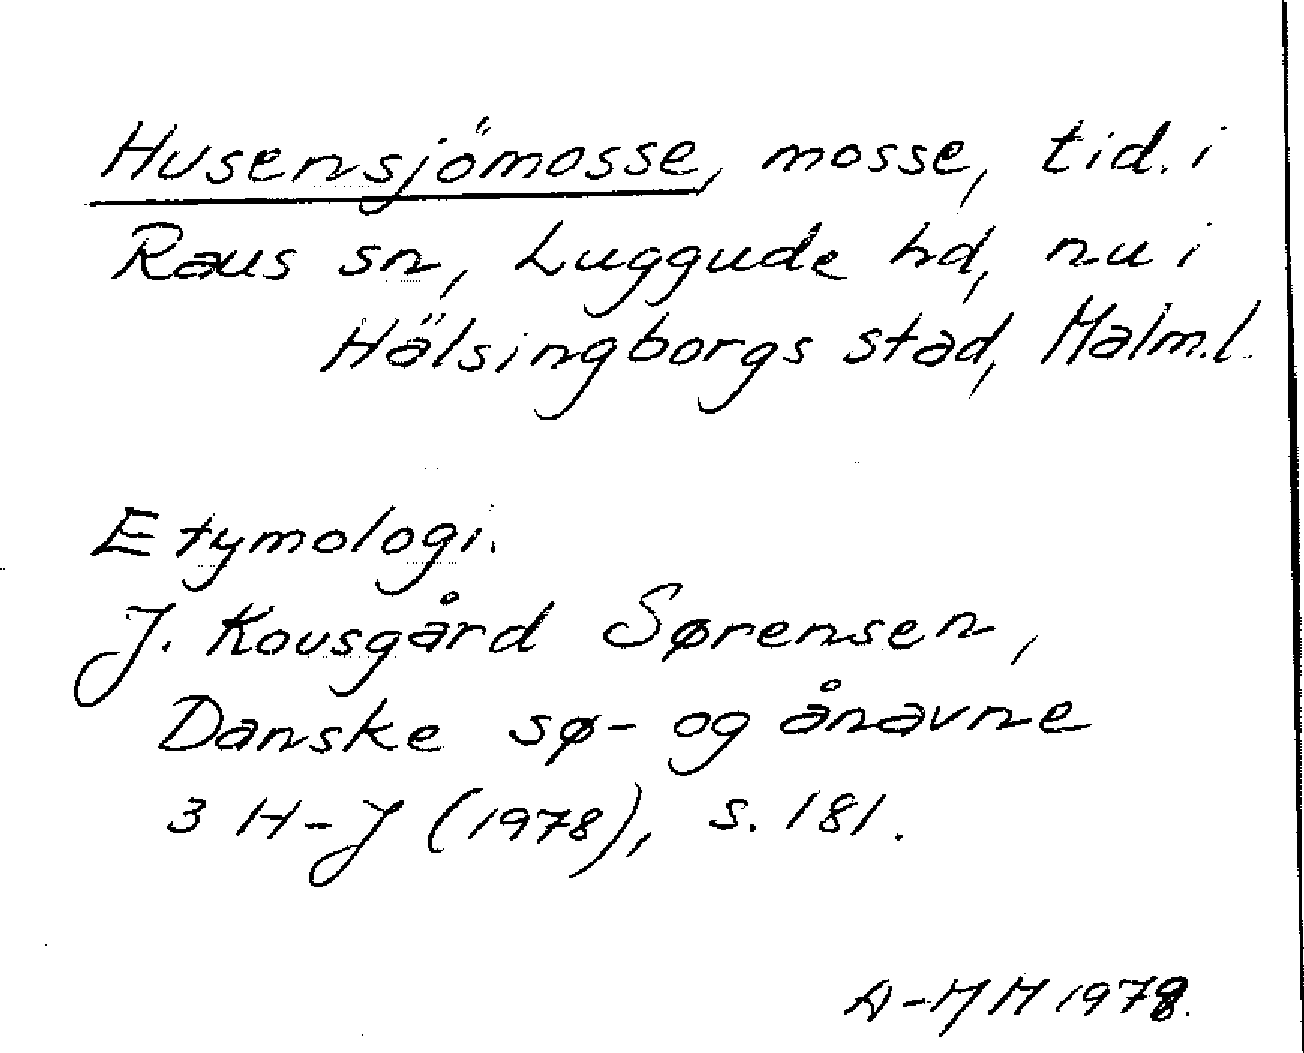 Husensjömosse, mosse, tid. i
Raus sn, Luggude hd, nu i
Hälsingborgs stad, Malm.l.
Etymologi.
J. Kousgård Sørensen,
Danske sø- og ånavne
3 H-J (1978), s. 181.
A-MH 1978.